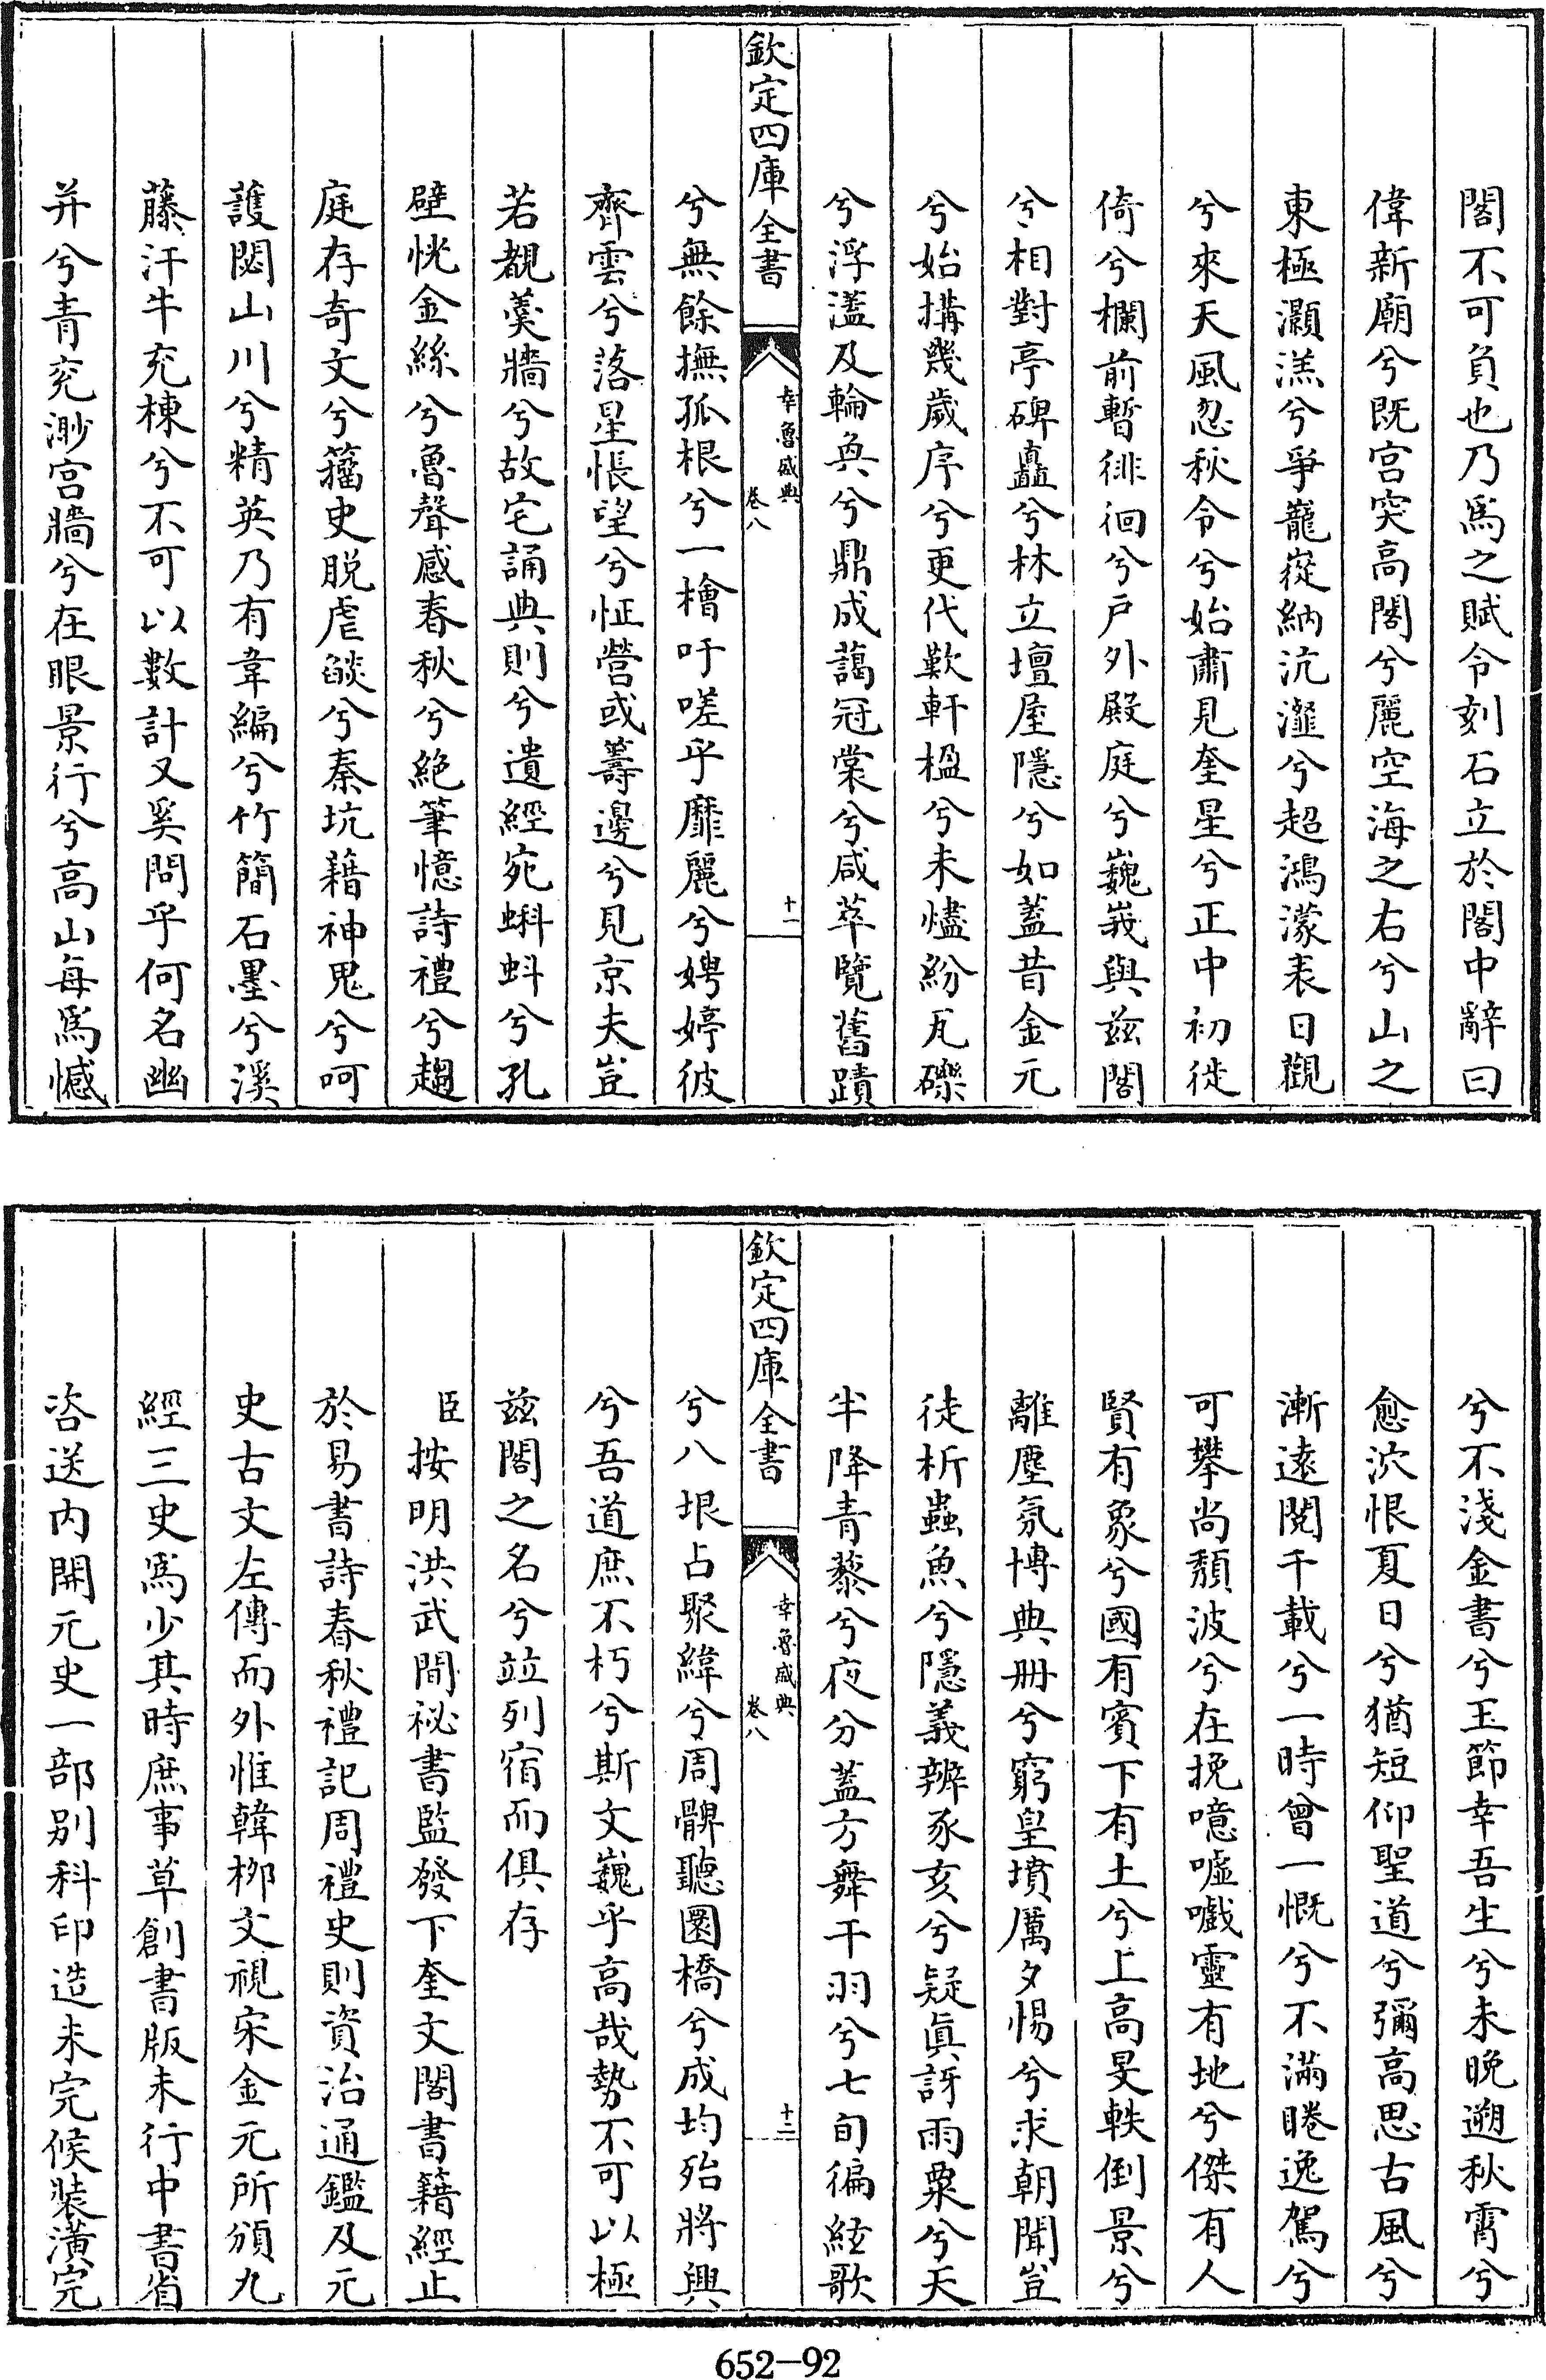 閣不可負也乃爲之賦令刻石立於閣中辭曰
偉新廟兮既宫突高閣兮麗空海之右兮山之
東極灝溔兮爭巃嵸納沆瀣兮超鴻濛表日觀
兮來天風忽秋令兮始肅見奎星兮正中初徙
倚兮欄前暫徘徊兮戸外殿庭兮巍峩與兹閣
兮相對亭碑矗兮林立壇屋隱兮如蓋昔金元
兮始搆幾歲序兮更代歎軒楹兮未燼紛瓦礫
兮浮溘及輪奐兮鼎成藹冠裳兮咸萃覽舊蹟
欽定四庫全書
幸魯盛典
卷八
十一
兮無餘撫孤根兮一檜吁嗟乎靡麗兮娉婷彼
齊雲兮落星悵望兮怔營或籌邊兮見京夫豈
若覩羮牆兮故宅誦典則兮遺經宛蝌蚪兮孔
壁恍金絲兮魯聲感春秋兮絶筆憶詩禮兮趨
庭存奇文兮籀史脱虐燄兮秦坑藉神鬼兮呵
護閟山川兮精英乃有韋編兮竹簡石墨兮溪
藤汗牛充棟兮不可以數計又奚問乎何名幽
并兮青兖渺宫牆兮在眼景行兮高山每爲憾
兮不淺金書兮玉節幸吾生兮未晚遡秋霄兮
愈泬恨夏日兮猶短仰聖道兮彌高思古風兮
漸遠閱千載兮一時曾一慨兮不滿睠逸駕兮
可攀尚頽波兮在挽噫嘘嚱靈有地兮傑有人
賢有象兮國有賓下有土兮上高旻軼倒景兮
離塵氛博典册兮窮皇墳厲夕惕兮求朝聞豈
徒析蟲魚兮隱義辨豕亥兮疑眞訝雨粟兮天
半降青藜兮夜分蓋方舞干羽兮七旬徧絃歌
欽定四庫全書
幸魯盛典
卷八
十二
兮八垠占聚緯兮周髀聽圜橋兮成均殆將興
兮吾道庶不朽兮斯文巍乎高哉勢不可以極
兹閣之名兮竝列宿而俱存
臣按明洪武間祕書監發下奎文閣書籍經止
於易書詩春秋禮記周禮史則資治通鑑及元
史古文左傳而外惟韓栁文視宋金元所頒九
經三史爲少其時庶事草創書版未行中書省
咨送内開元史一部别科印造未完候裝潢完
652-92